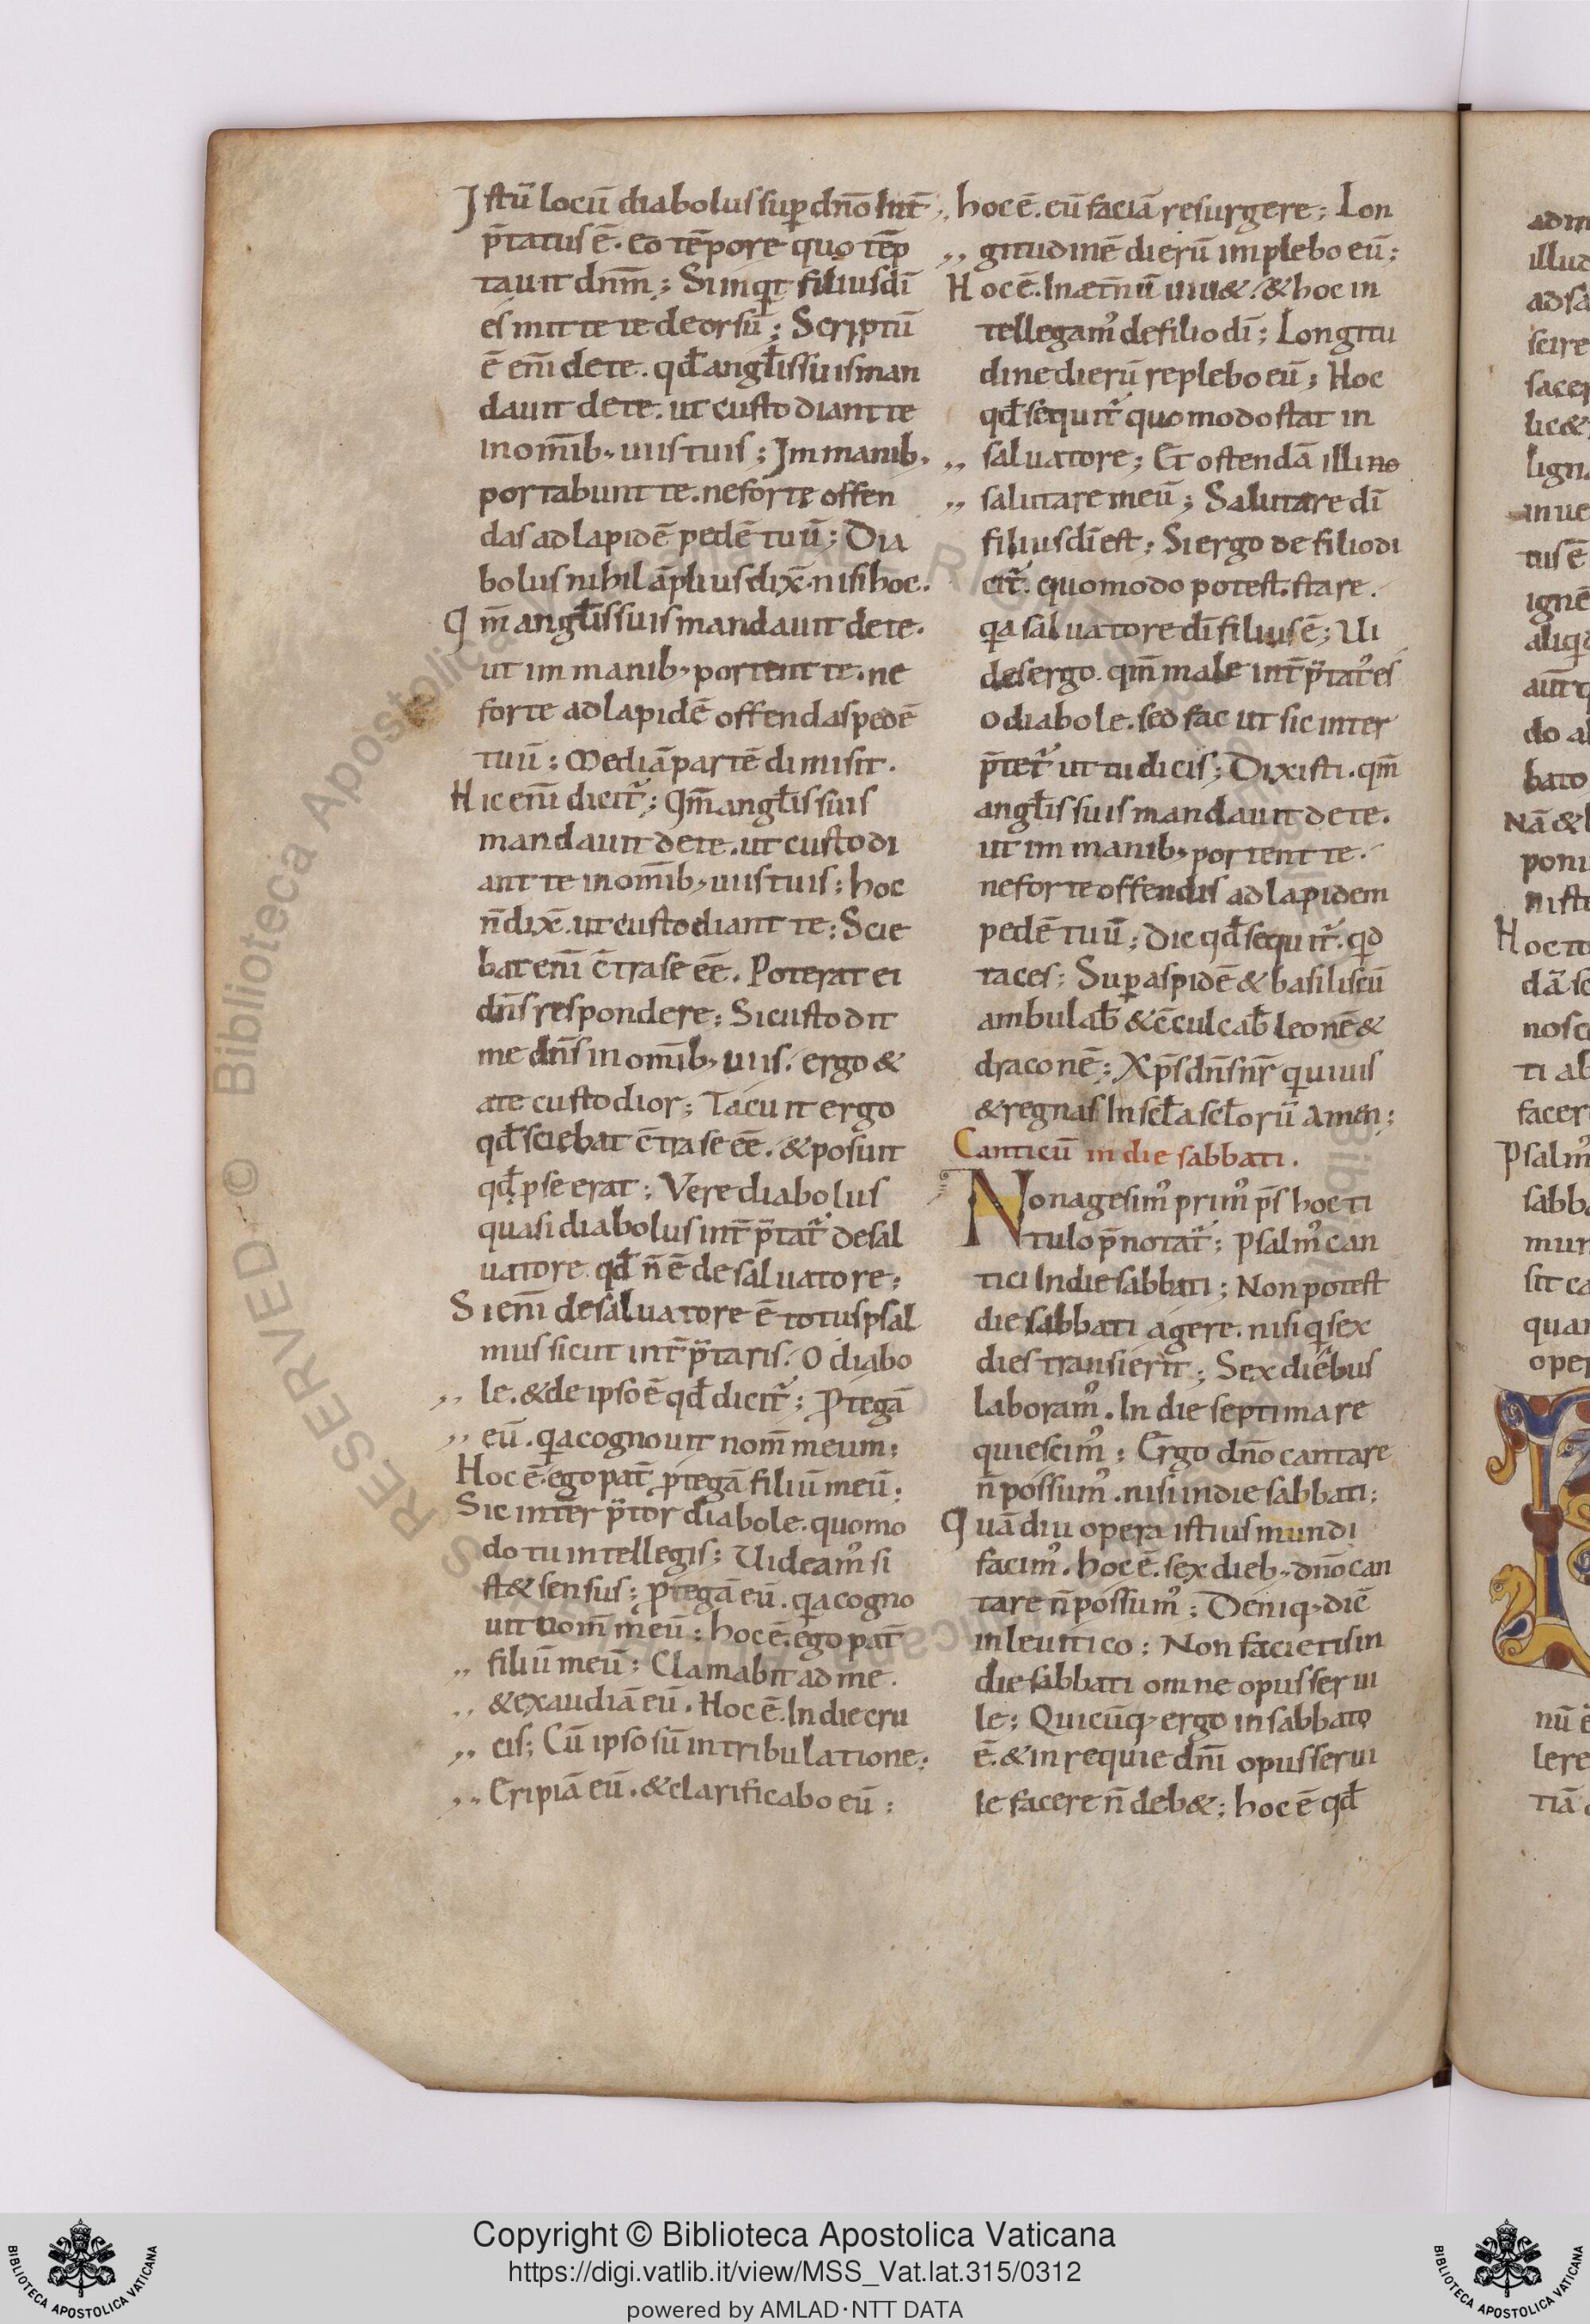 Istū locū diabolus suꝑ dn̄o int̄
p̄tatus ē. eo tēpore quo tēp
tauit dnm̄; Si inqt filius dī
es mitte te deorsū; Scriptū
ē eni̅ de te. qd̄ angl̄is suis man
dauit de te. ut custodiant te
in om̄ib; uiis tuis; Im manib;
portabunt te. ne forte offen
das ad lapidē pedē tuū; Dia
bolus nihil āplius dix̄. nisi hoc.
Qm̄ angl̄is suis mandauit de te.
ut im manib; portent te. ne
forte ad lapidē offendas pedē
tuū; Mediā partē dimisit.
Hic eni̅ dicit᷑; Qm̄ angl̄is suis
mandauit de te. ut custodi
ant te in om̄ib; uiis tuis; hoc
n̄ dix̄. ut custodiant te; Scie
bat eni̅ c̄tra se eē. Poterat ei
dn̄s respondere; Si custodit
me dn̄s in om̄ib; uiis. ergo &
a te custodior; Tacuit ergo
qd̄ sciebat c̄tra se eē. & posuit
qd̄ ꝓ se erat; Vere diabolus
quasi diabolus int̄p̄tat᷑ de sal
uatore. qd̄ n̄ ē de saluatore;
Si eni̅ de saluatore ē totus psal
mus sicut int̄p̄taris. O diabo
„ le. & de ipso ē qd̄ dicit᷑; Ꝓtegā
„ eū. qa cognouit nom̄ meum;
Hoc ē. ego pat̄ ꝓtegā filiū meū;
Sic interp̄tor diabole. quomo
do tu intellegis; Uideam᷒ si
st& sensus; ꝓtegā eū. qa cogno
uit nom̄ meū; hoc ē. ego pat̄
„ filiū meū; Clamabit ad me.
„ & exaudiā eū. Hoc ē. In die cru
„ cis; Cū ipso sū in tribulatione;
„ Eripiā eū. & clarificabo eū;
„ hoc ē. eū faciā resurgere; Lon
„ gitudinē dierū implebo eū;
Hoc ē. In aet̄nū uiu&. & hoc in
tellegam᷒ de filio dī; Longitu
dine dierū replebo eū; Hoc
qd̄ sequit᷑ quomodo stat in
„ saluatore; Et ostendā illi
„ salutare meū; Salutare dī
filius dī est; Si ergo de filio di
cit᷑. quomodo potest stare.
qa saluatore dī filius ē; Ui
des ergo. qm̄ male int̄p̄tat᷒ es
o diabole. sed fac ut sic inter
p̄tet᷑ ut tu dicis; Dixisti. qm̄
angl̄is suis mandauit de te.
ut im manib; portent te.
ne forte offendas ad lapidem
pedē tuū; Dic qd̄ sequit᷑. qd
taces; Suꝑ aspidē & basiliscū
ambulab̄ & c̄culcab̄ leonē &
draconē; Xp̄s dn̄s nr̄ qui uiuis
& regnas In scl̄a scl̄orū amen;
Canticū in die sabbati.
Nonagesim᷒ prim᷒ ps̄ hoc ti
tulo p̄notat᷑; Psalm᷒ can
tici In die sabbati; Non potest
die sabbati agere. nisi q sex
dies transierit; Sex diebus
laboram᷒. In die septima re
quiescim᷒; Ergo dn̄o cantare
n̄ possum᷒. nisi in die sabbati;
Quādiu opera istius mundi
facim᷒. hoc ē. sex dieb; dn̄o can
tare n̄ possum᷒; Deniq; dic̄
in leuitico; Non facietis in
die sabbati omne opus serui
le; Quicūq; ergo in sabbato
ē. & in requie dni̅ opus serui
le facere n̄ deb&; hoc ē qd̄
Copyright © Biblioteca Apostolica Vaticana
https://digi.vatlib.it/view/MSS_Vat.lat.315/0312
powered by AMLAD·NTT DATA
BIBLIOTECA APOSTOLICA VATICANA
BIBLIOTECA APOSTOLICA VATICANA